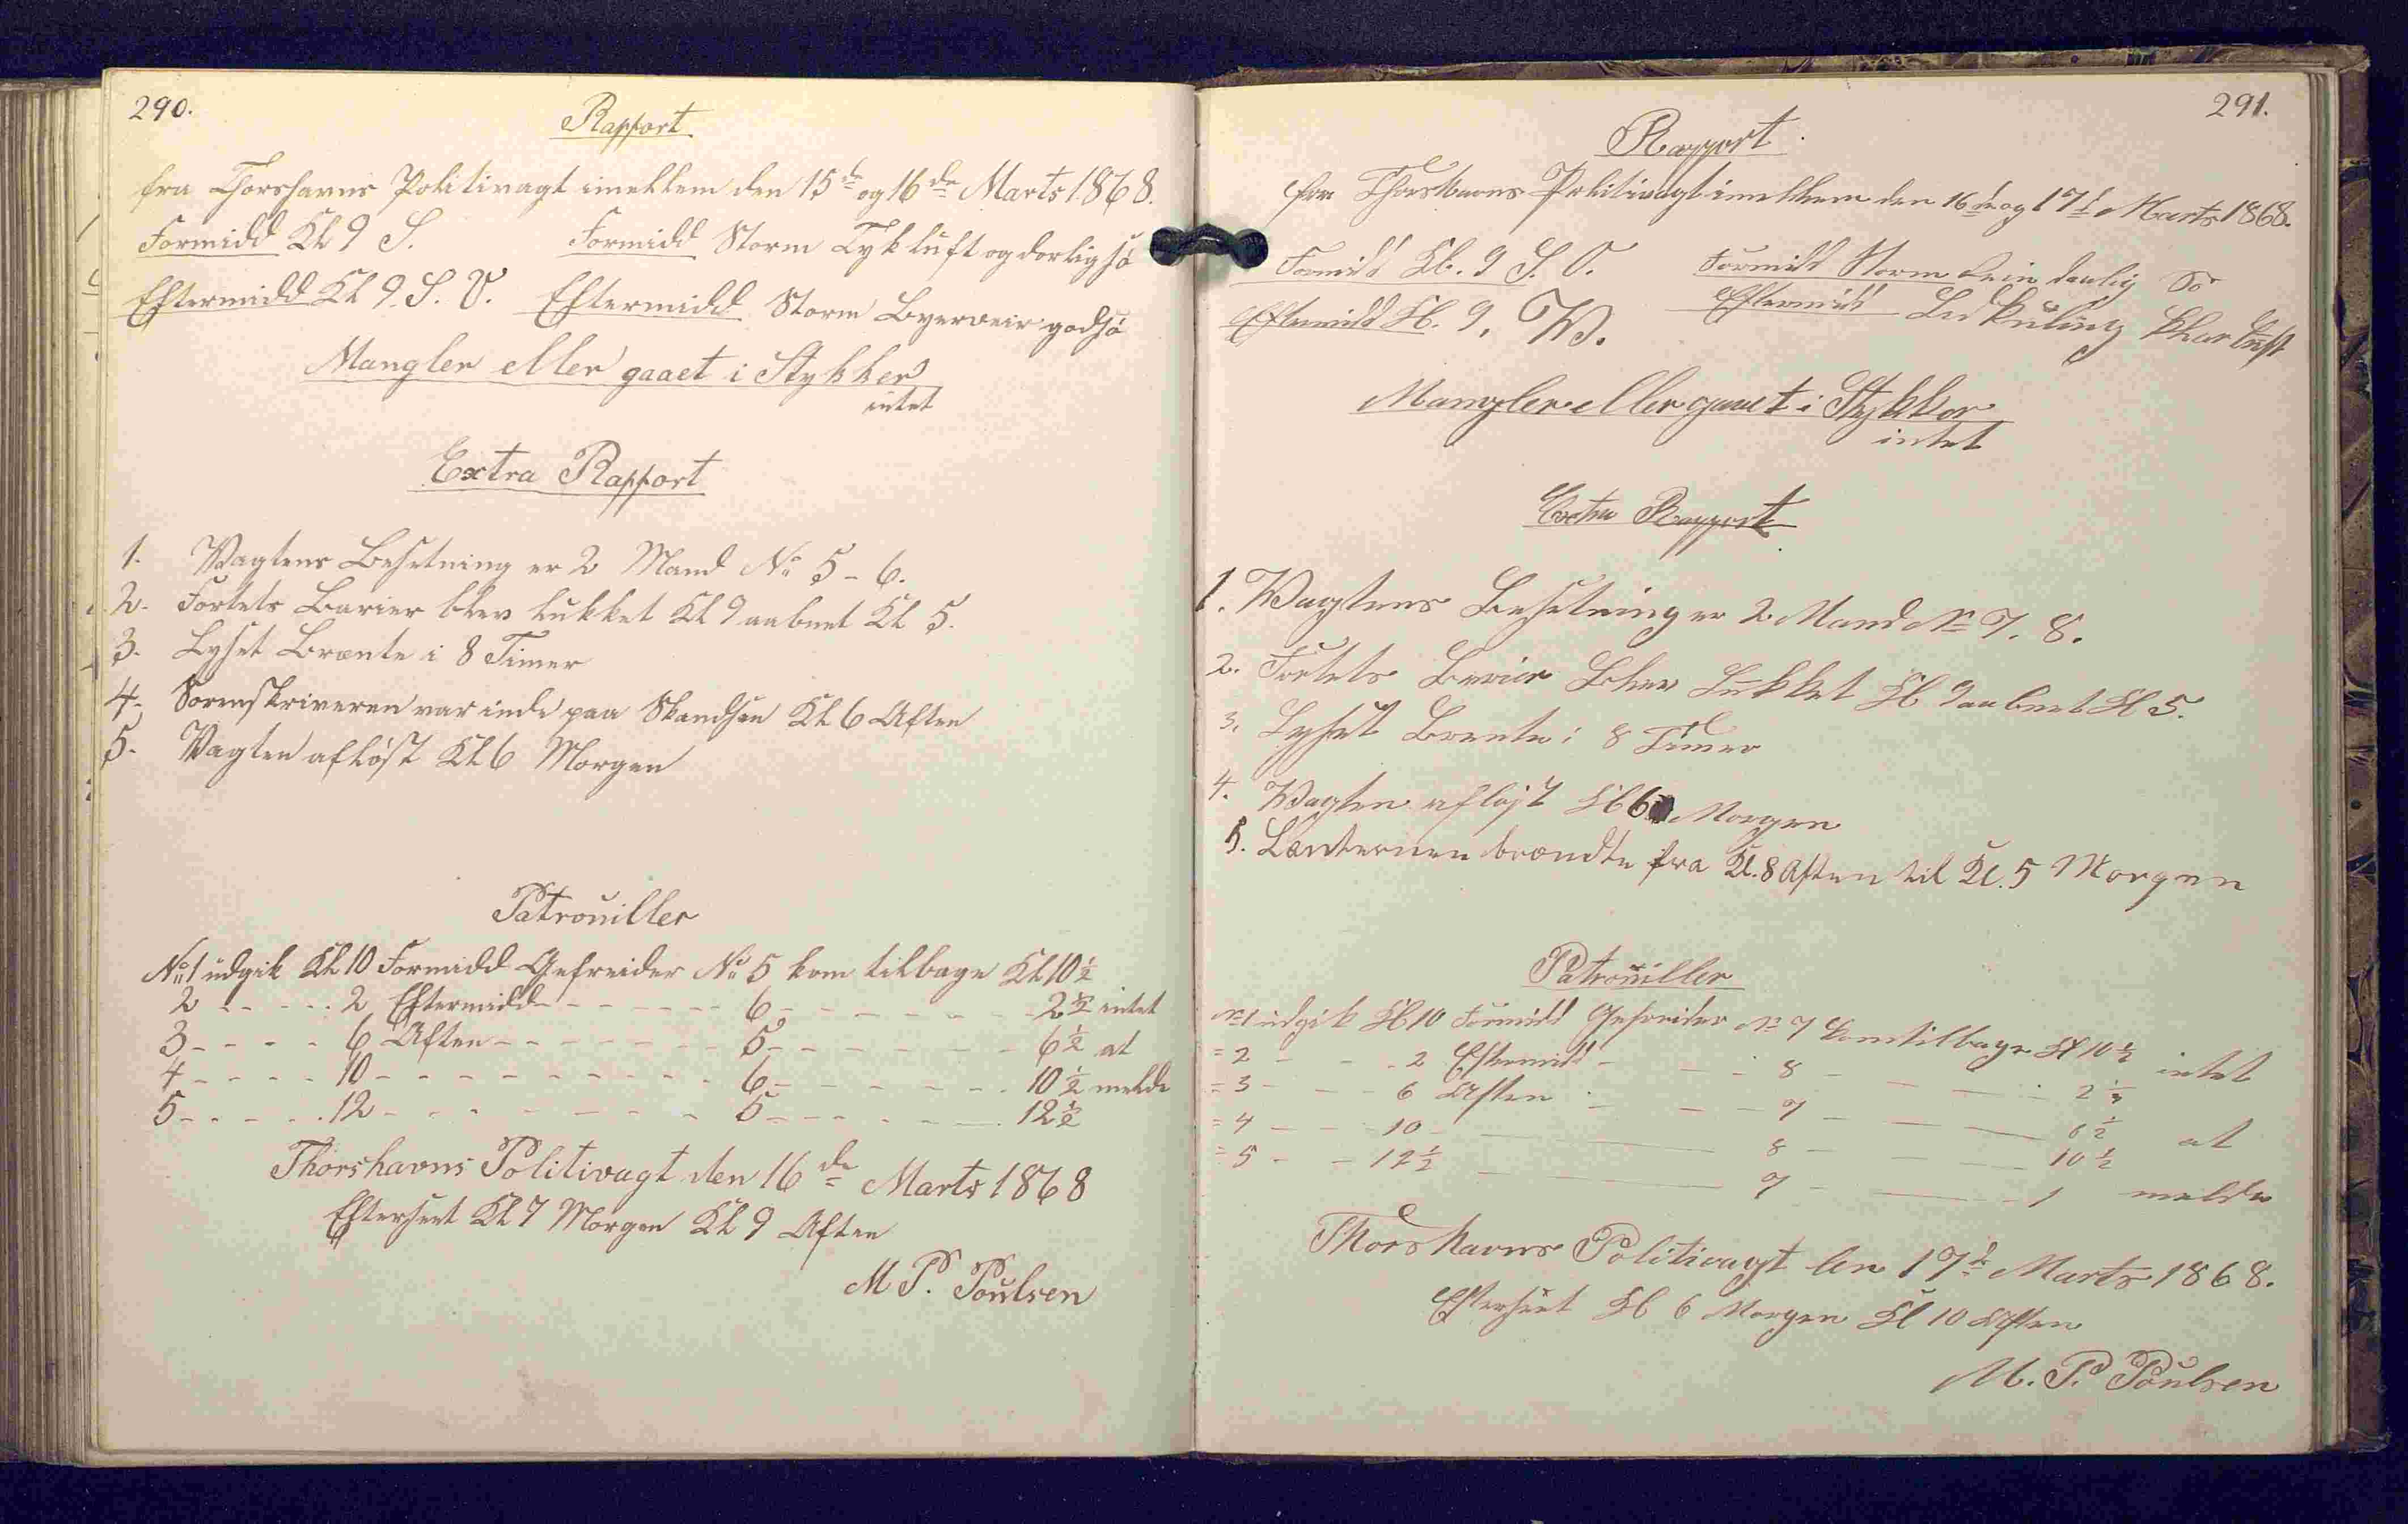 290.
Rapport
fra Thorshavns Politivagt imellem den 15de og 16de Marts 1868.
Formidd Kl 9 S. Formidd Storm Tyk luft og dorlig sö
Eftermidd Kl 9. S. V. Eftermidd Storm Byerveir god sö
Mangler eller gaaet i Stykker
intet
Extra Rapport
1. Vagtens Besetning er 2 Mand No 5 - 6.
2. Fortets Barier blev lukket Kl 9 aabnet Kl 5.
3. Lyset Brænte i 8 Timer
4. Sorenskriveren var inde paa Skandsen Kl 6 Aften
5. Vagten afløst Kl 6 Morgen
Patrouiller
No 1 udgik Kl 10 Formidd Gefreider No 5 kom tilbage Kl 10 1/2
2 - - - - - 2 Eftermidd - - - - - - 6 - - - - - - - 2 1/2 intet
3 - - - - 6 Aften - - - - - - - 5 - - - - - - - 6 1/2 at
4 - - - - 10 - - - - - - - - - 6 - - - - - - - 10 1/2 melde
5 - - - - - 12 - - - - - - - - 5 - - - - - - - 12 1/2
Thorshavns Politivagt den 16de Marts 1868
Efterseet Kl 7 Morgen Kl 9 Aften
M P. Poulsen
291.
Rapport.
fra Thorshavns Politivagt imellem den 16de og 17d Marts 1868.
Formidd Kl. 9 S. V. Formidd Storm daalig Sö
Eftermidd Kl. 9. W. Eftermidd Kuling Klar luft
Mangler eller gaaet i Stykker
intet
Extra Rapport
1. Wagtens Besetning er 2 Mand No 7. 8.
2. Fortets Barier Blev Lukket Kl 9 aabnet Kl 5.
3. Lyset Brente i 8 Timer
4. Wagten afløst Kl 6 Morgen
5. Lanternen brændte fra Kl. 8 Aften til Kl. 5 Morgen
Patrouiller
No 1 udgik Kl 10 Formidd Gefreider No 7 kom tilbage Kl 10 1/2
= 2 - - - 2 Eftermidd - - - 8 - - - 2 1/2 intet
= 3 - - - 6 Aften - - - 7 - - - 6 1/2
= 4 - - - 10 - - - 8 - - - 10 1/2 at
= 5 - - 12 1/2 - - - 7 - - - 1 melde
Thorshavns Politivagt den 17d Marts 1868.
Efterseet Kl 6 Morgen Kl 10 Aften
M. P. Poulsen